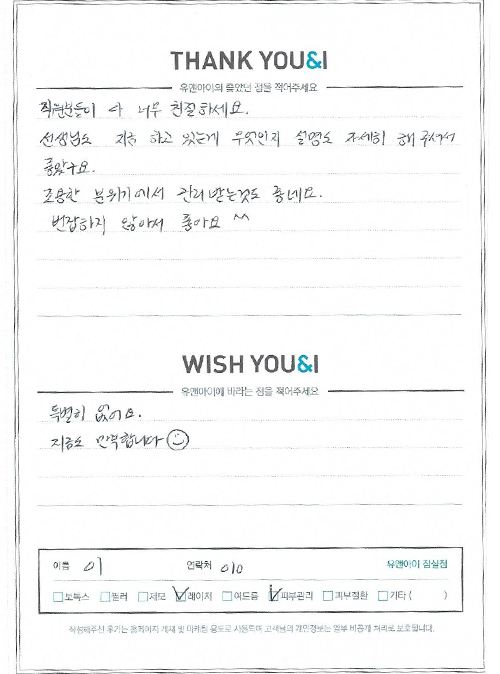 THANK YOU&I
유앤아이의 좋았던 점을 적어주세요
직원분들이 다 너무 친절하세요.
선생님도 지금 하고 있는게 무엇인지 설명도 자세히 해주셔서
좋았구요.
조용한 분위기에서 관리받는것도 좋네요.
번잡하지 않아서 좋아요 ^^
WISH YOU&I
유앤아이에 바라는 점을 적어주세요
특별히 없어요.
지금도 만족합니다
이름 이 연락처 010 유앤아이 잠실점
보톡스 필러 제모 레이저 여드름 피부관리 피부질환 기타 ( )
작성해주신 후기는 홈페이지 게재 및 마케팅 용도로 사용되며 고객님의 개인정보는 일부 비공개 처리로 보호됩니다.